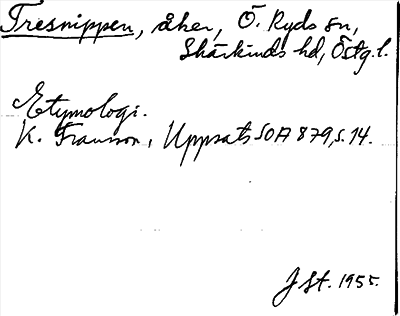 Tresnippen, åker, Ö. Ryds sn,
Skärkinds hd, Östg. l.
Etymologi.
K. Fransson, Uppsats SOA 879, s. 14.
J St. 1955.